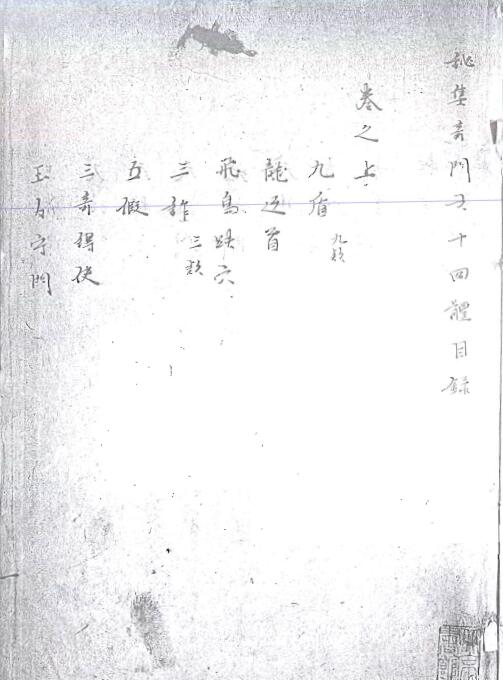 秘集奇門五十四體目録
卷之上
九盾 九款
龍返首
飛鳥跌穴
三詐 三款
五假
三奇得使
玉女守門